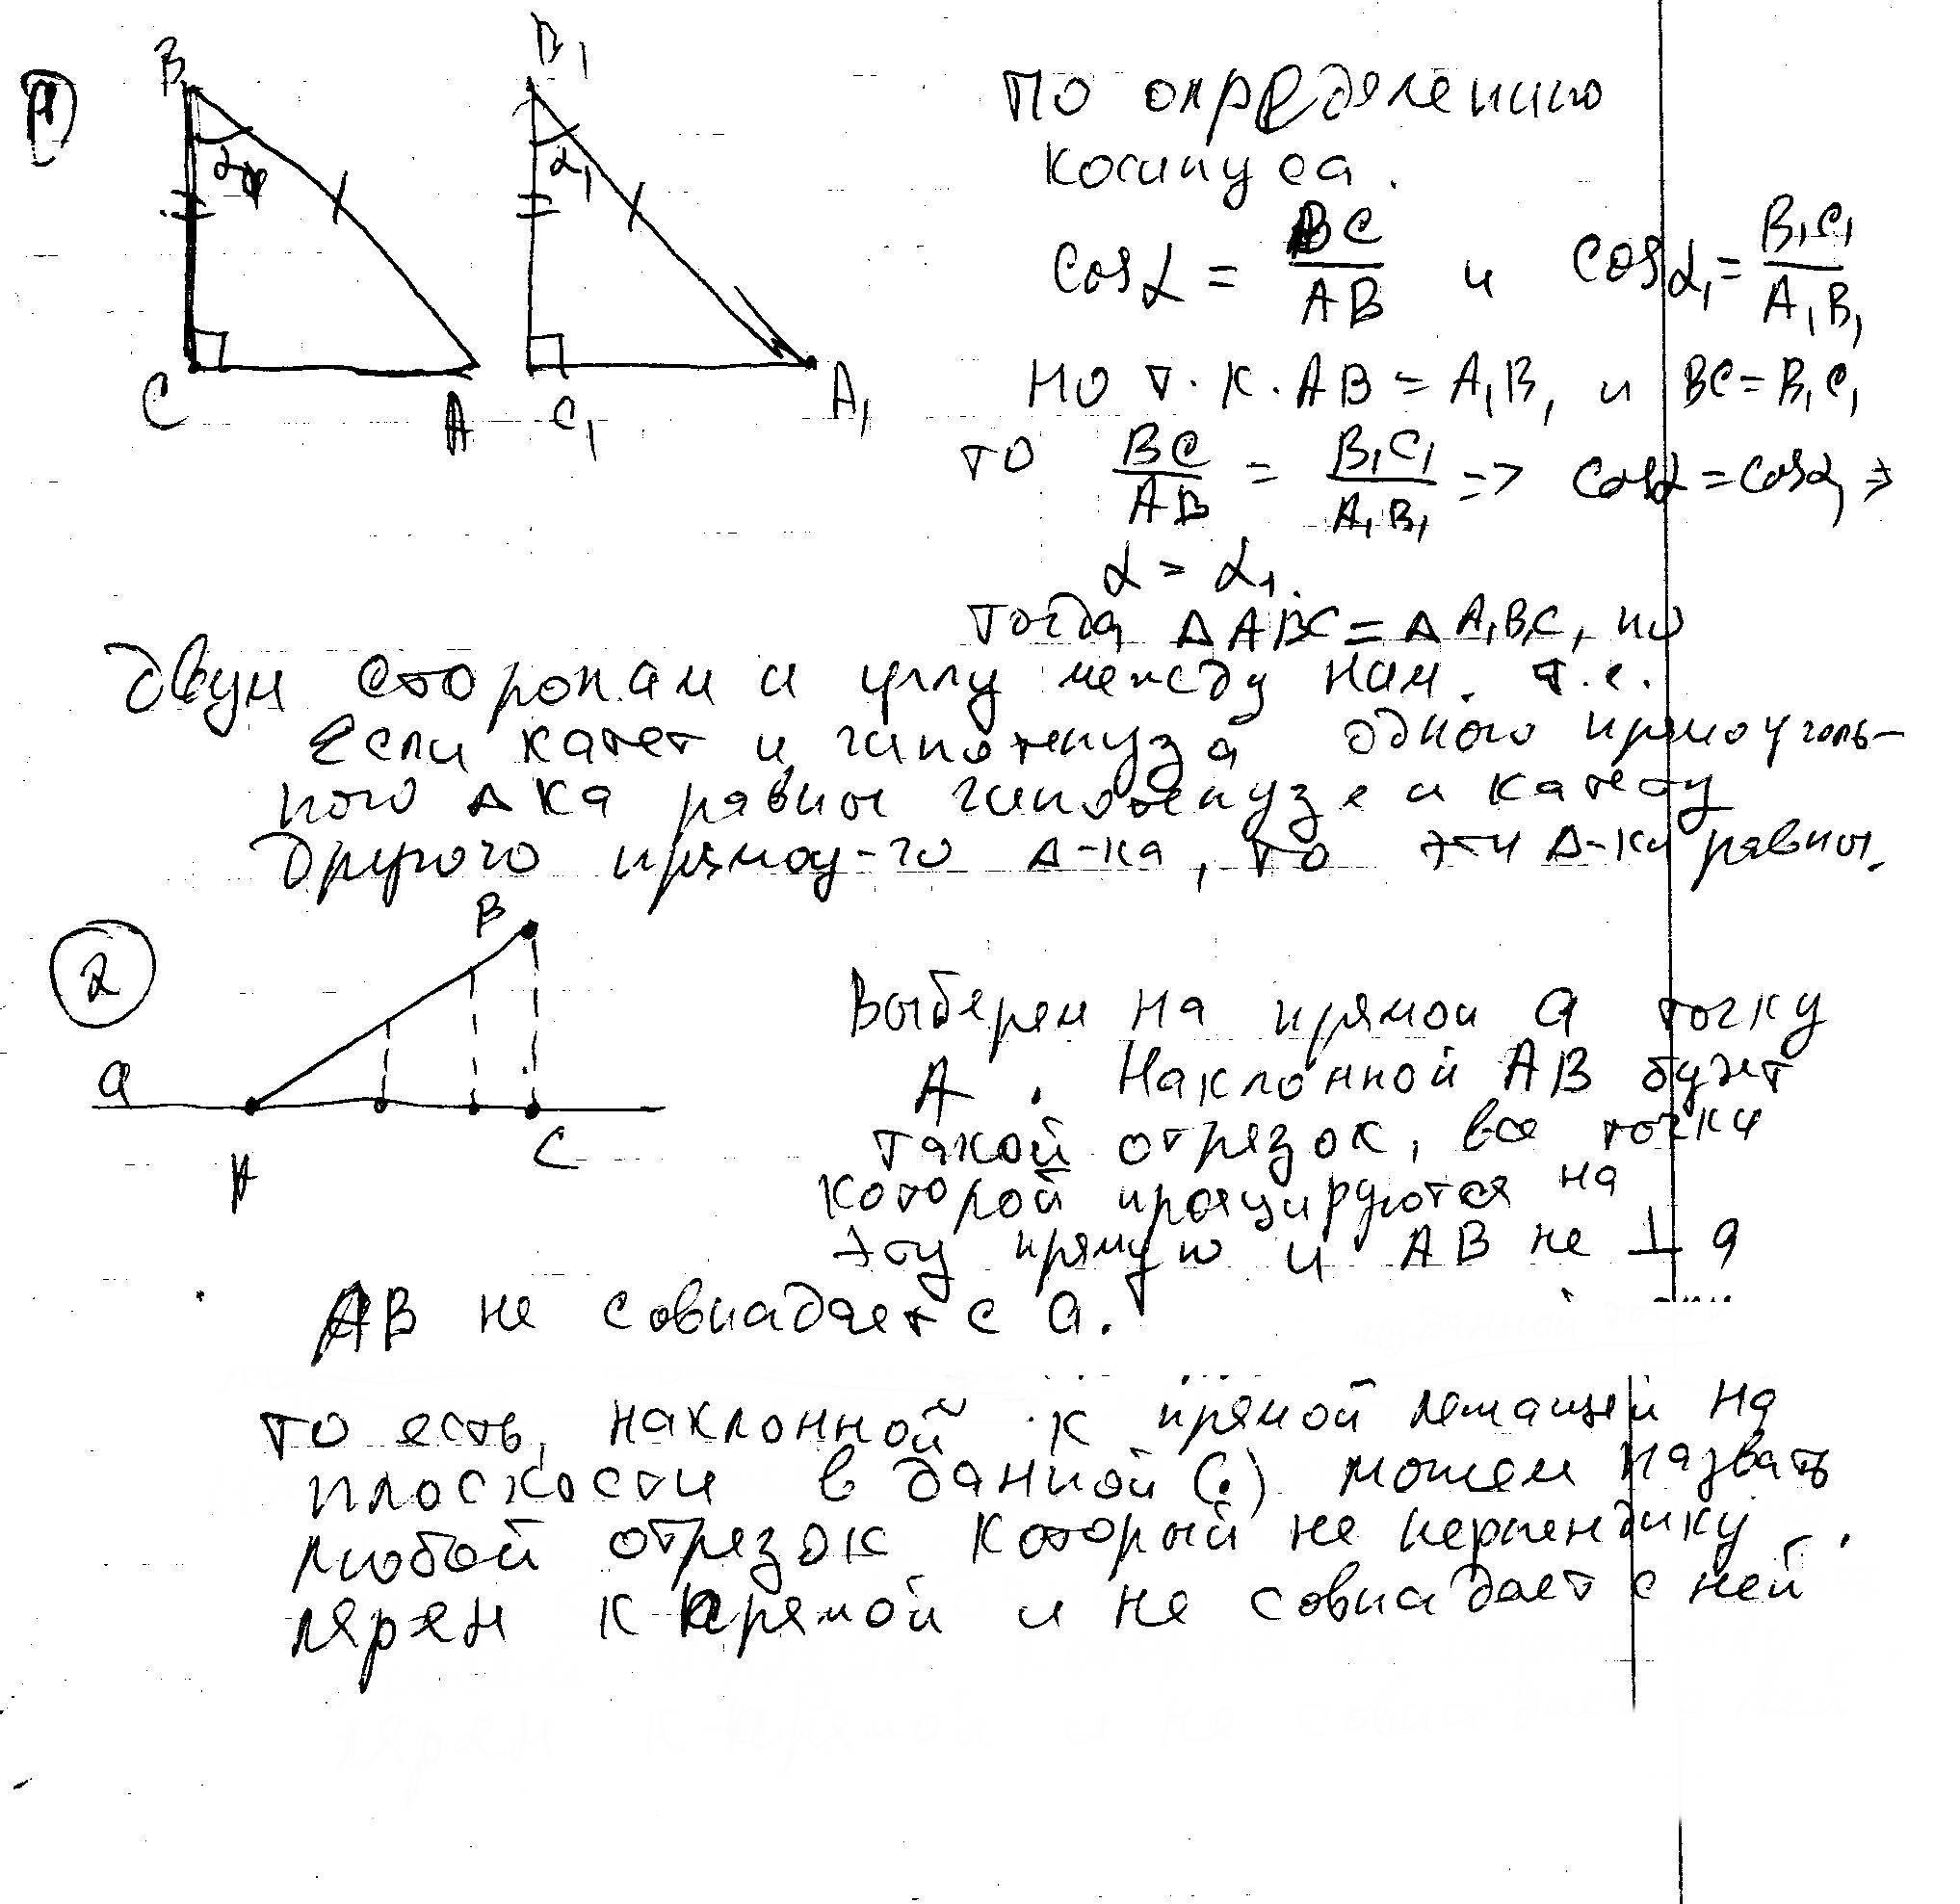 1
B
B₁
α
α₁
C
A
C₁
A₁
По определению
косинуса.
cosα = BC/AB и cosα₁ = B₁C₁/A₁B₁
Но т.к. AB = A₁B₁ и BC = B₁C₁
то BC/AB = B₁C₁/A₁B₁ => cosα = cosα₁ =>
α = α₁.
тогда ΔABC = ΔA₁B₁C₁ по
двум сторонам и углу между ним. т.е.
Если катет и гипотенуза одного прямоуголь-
ного Δка равны гипотенузе и катету
другого прямоу-го Δ-ка, то эти Δ-ки равны.
2
B
a
A
C
Выберем на прямой a точку
A. Наклонной AB будет
такой отрезок, все точки
которой проецируются на
эту прямую и AB не ⊥ a
AB не совпадает с a.
то есть, наклонной к прямой лежащей на
плоскости в данной (·) можем назвать
любой отрезок который не перпендику
лярен к прямой и не совпадает с ней